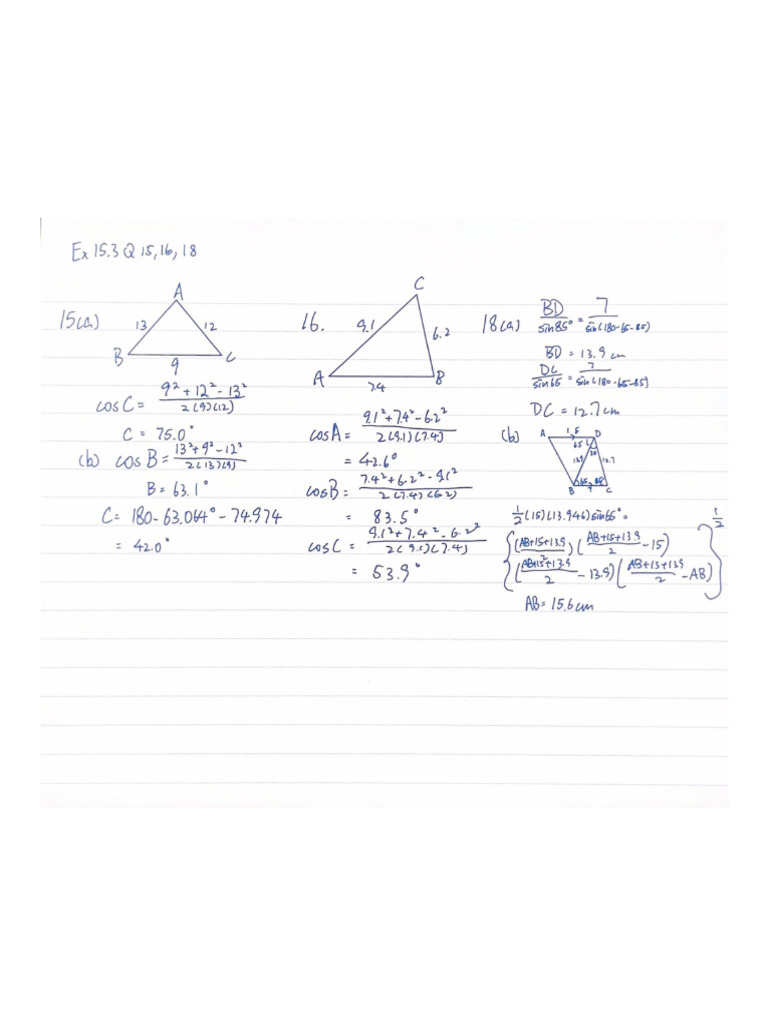 Ex 15.3 Q 15, 16, 18
15(a)
A
13
12
B
9
C
cos C = (9² + 12² - 13²) / 2(9)(12)
C = 75.0°
(b) cos B = (13² + 9² - 12²) / 2(13)(9)
B = 63.1°
C = 180 - 63.064° - 74.974
= 42.0°
16.
C
9.1
6.2
A
B
74
cosA = (9.1² + 7.4² - 6.2²) / 2(9.1)(7.4)
= 42.6°
cosB = (7.4² + 6.2² - 9.1²) / 2(7.4)(6.2)
= 83.5°
cos C = (9.1² + 7.4² - 6.2²) / 2(9.1)(7.4)
= 53.9°
18(a) BD / sin85° = 7 / sin(180-65-85)
BD = 13.9 cm
DC / sin65 = 7 / sin(180-65-85)
DC = 12.7cm
(b)
A
1.5
D
65
30
13.9
12.7
B
65
85
7
C
½(15)(13.946)sin65° =
{(AB+15+13.9 / 2)(AB+15+13.9 / 2 - 15)
(AB+15+13.9 / 2 - 13.9)(AB+15+13.9 / 2 - AB)}^½
AB = 15.6cm